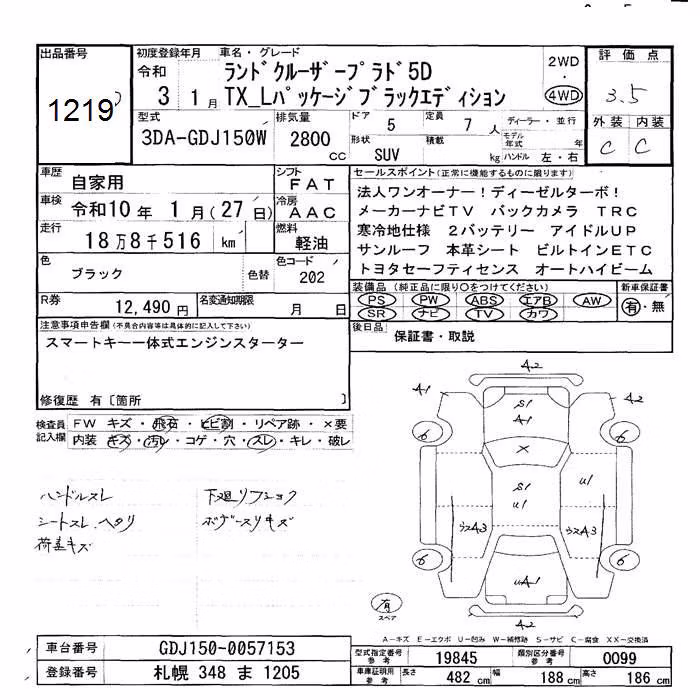 出品番号
1219
初度登録年月
令和
3 1月
車名・グレード
ランドクルーザープラド5D
TX_Lパッケージブラックエディション
2WD
・
4WD
評価点
3.5
外装 内装
C C
型式
3DA-GDJ150W
排気量
2800
cc
ドア 5
定員 7 人
形状
SUV
積載
kg
ディーラー・並行
モデル年式 年
ハンドル 左・右
車歴
自家用
シフト
FAT
車検
令和10年 1月(27日)
冷房
AAC
走行
18万8千516 km
燃料
軽油
色
ブラック
色替
色コード
202
R券
12,490円
名変通知期限
月 日
セールスポイント(正常に機能するものに限ります)
法人ワンオーナー!ディーゼルターボ!
メーカーナビTV バックカメラ TRC
寒冷地仕様 2バッテリー アイドルUP
サンルーフ 本革シート ビルトインETC
トヨタセーフティセンス オートハイビーム
装備品(純正品に限り○をつけてください)
PS PW ABS エアB AW
SR ナビ TV カワ
新車保証書
有・無
後日品
保証書・取説
注意事項申告欄(不具合内容等は具体的に記入して下さい)
スマートキー一体式エンジンスターター
修復歴 有〔箇所 〕
検査員記入欄
FW キズ・飛石・ヒビ割・リペア跡・×要
内装 キズ・汚レ・コゲ・穴・スレ・キレ・破レ
ハンドルスレ
シートスレ、ヘタリ
荷室キズ
下廻リフショク
ボデースリキズ
A2
A1
A2
S1
A1
6
6
X
S1
U1
U1
ウスA3
ウスA3
6
6
UA1
A2
有
スペア
A-キズ E-エクボ U-凹み W-補修跡 S-サビ C-腐食 XX-交換済
車台番号
GDJ150-0057153
登録番号
札幌 348 ま 1205
型式指定番号
参考
19845
類別区分番号
参考
0099
車庫証明用
参考
長さ 482 cm
幅 188 cm
高さ 186 cm